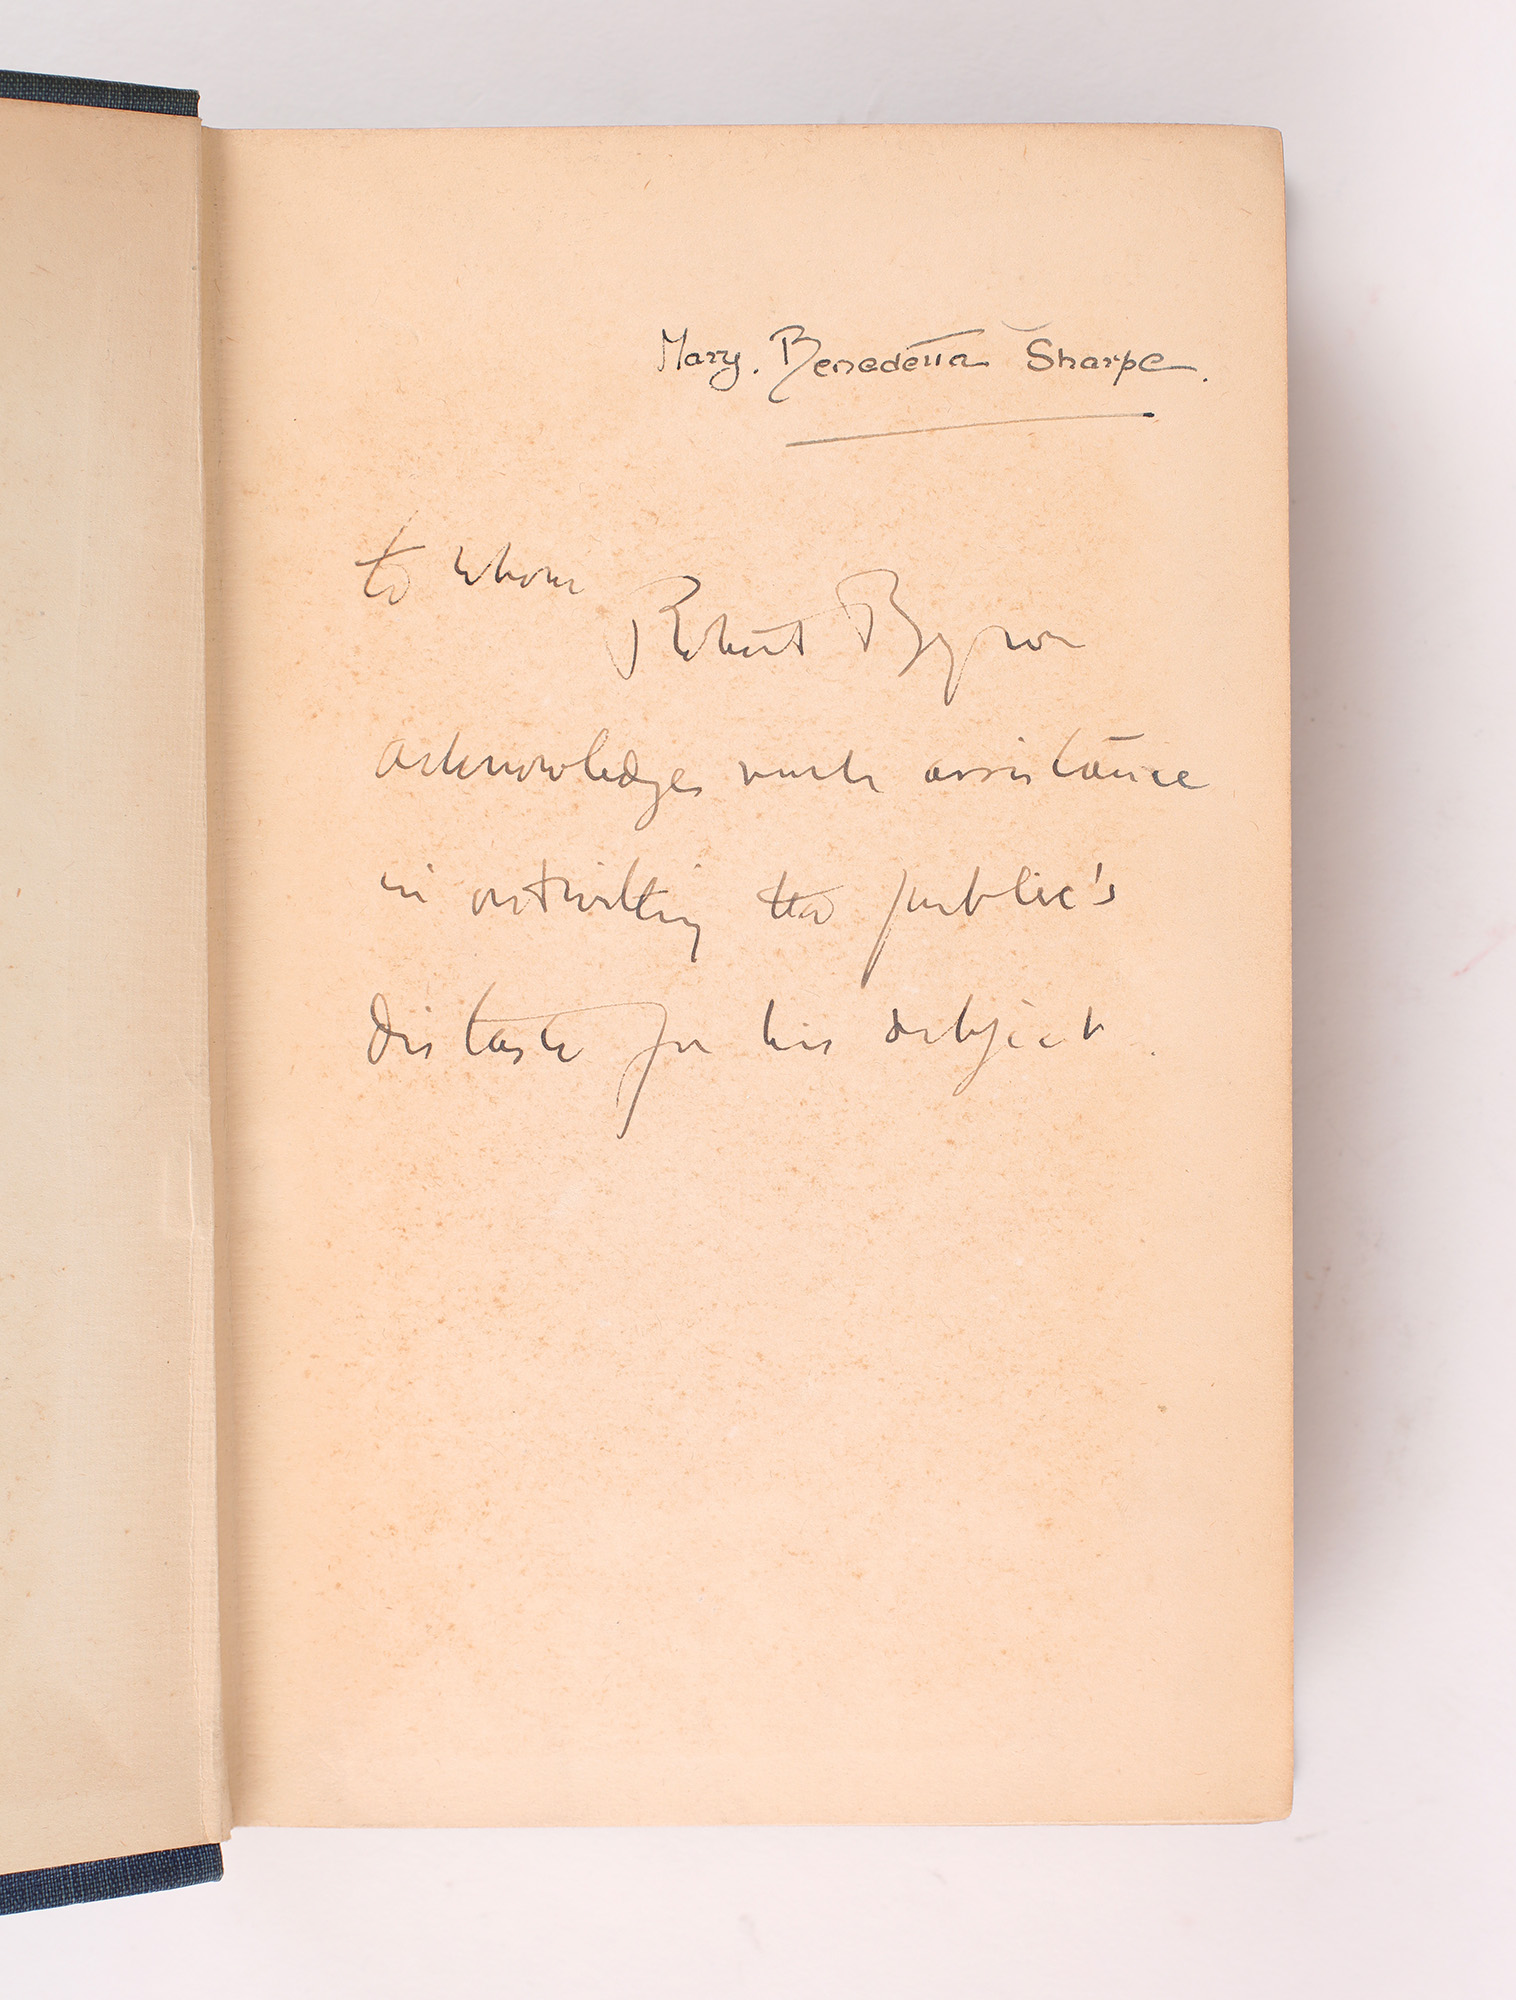 Mary. Benedetta Sharpe.
to whom
Robert Byron
acknowledges much assistance
in outwitting the public's
distaste for his subject.